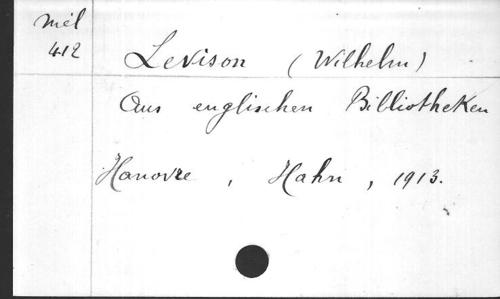 Mél
412
Levison (Wilhelm)
Aus englischen Bibliotheken
Hanovre, Hahn, 1913.